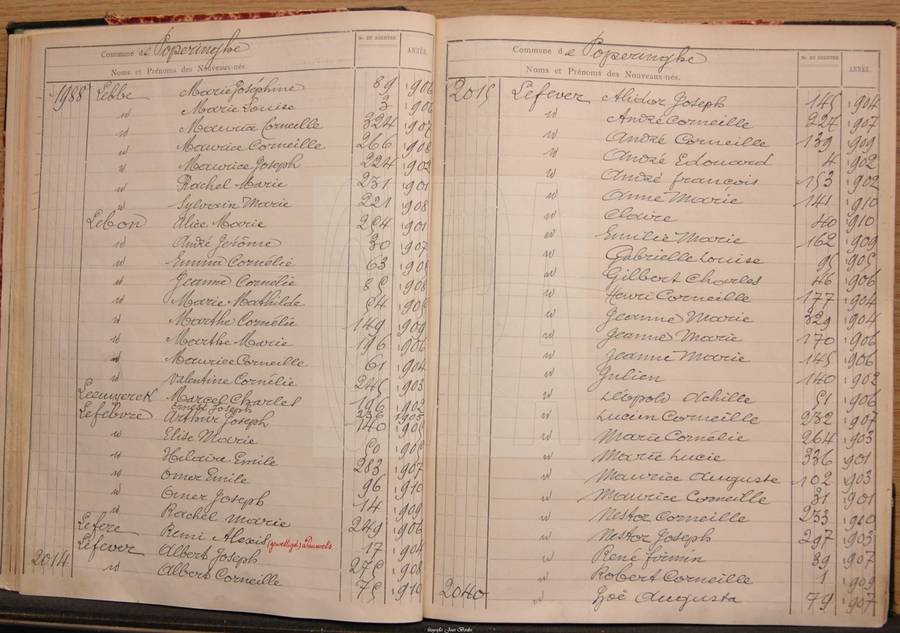 Commune de Poperinghe
Nos DE REGISTRE
ANNÉE.
Noms et Prénoms des Nouveaux-nés.
1988 Lebbe Marie Joséphine 89 1906
id Marie Louise 3 1906
id Maurice Corneille 324 1907
id Maurice Corneille 266 1908
id Maurice Joseph 224 1902
id Rachel Marie 231 1901
id Sylvain Marie 221 1908
Lebon Alice Marie 254 1901
id André Jérôme 30 1907
id Emma Cornélie 63
id Jeanne Cornélie 85 1908
id Marie Mathilde 54 1905
id Marthe Cornélie 149 1909
id Marthe Marie 196 1906
id Maurice Corneille 61 1904
id Valentine Cornélie 245 1903
Leeuwerck Marcel Charles 196 1902
Ernest Joseph 236 1905
Lefebvre Arthur Joseph 140
id Elise Marie 50
id Hilaire Emile 283 1907
id Omer Emile 96 1910
id Omer Joseph 14 1909
id Rachel Marie 249 1906
Lefere Remi Alexis (gewettigd) Pauwels 17 1904
Lefever Albert Joseph 275 1908
2014 id Albert Corneille 75 1910
Commune de Poperinghe
Nos DE REGISTRE
ANNÉE.
Noms et Prénoms des Nouveaux-nés.
2015 Lefever Alidor Joseph 145 1904
id André Corneille 227 1907
id André Corneille 139 1909
id André Edouard 4 1902
id André François 153 1902
id Anne Marie 141 1910
id Claire 40 1910
id Emilie Marie 162 1909
id Gabrielle Louise 95 1905
id Gilbert Charles 46 1906
id Henri Corneille 177 1904
id Jeanne Marie 329 1904
id Jeanne Marie 170 1906
id Jeanne Marie 145 1906
id Julien 140 1902
id Léopold Achille 51 1906
id Lucien Corneille 232 1907
id Marie Cornélie 264 1903
id Marie Lucie 336 1901
id Maurice Auguste 102 1903
id Maurice Corneille 31 1901
id Nestor Corneille 233 1910
id Nestor Joseph 297 1903
id René Firmin 39 1907
id Robert Corneille 1 1909
2040 id Zoë Augusta 79 1907